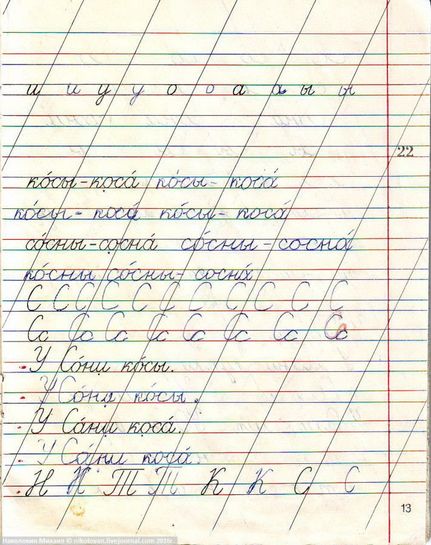 и и у у о о а а ы ы
22
ко́сы-коса́ ко́сы- коса́
ко́сы- коса́ ко́сы- коса́
со́сны-сосна́ со́сны-сосна́
со́сны со́сны- сосна́
С С С С С С С С С С С
Са Со Са Са Са Са Са Са
У Со́ни ко́сы.
У Со́ни ко́сы.
У Са́ни коса́.
У Са́ни коса́.
Н Н Т Т К К С С
13
Наколовин Михаил © nikolovan.livejournal.com 2016г